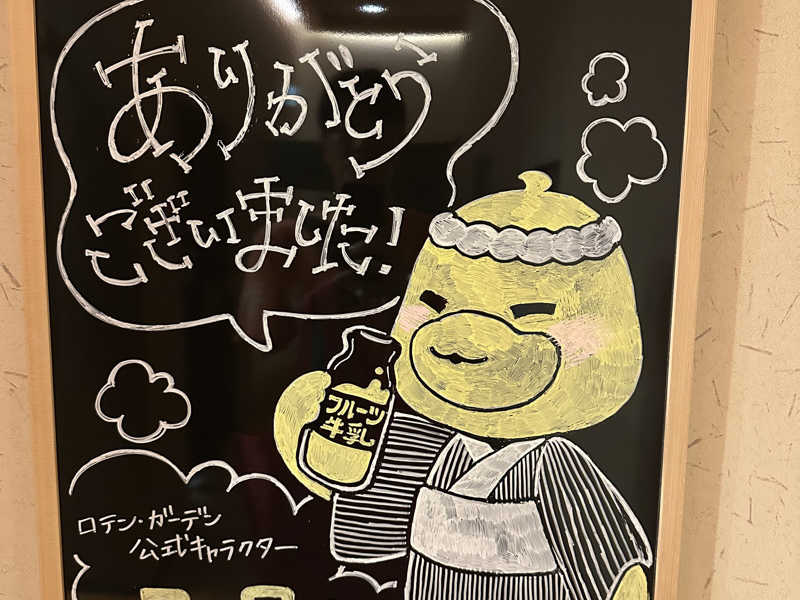 ありがとう
ございました!
フルーツ
牛乳
ロテン・ガーデン
公式キャラクター